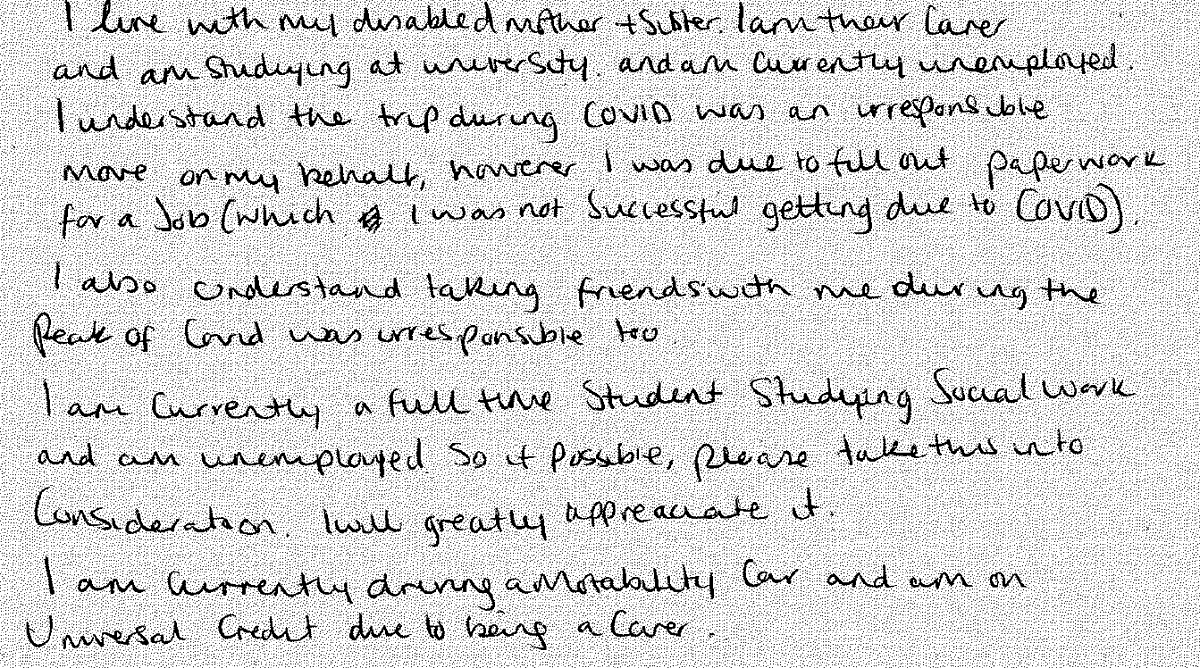 I live with my disabled mother + sister. I am their Carer
and am Studying at university. and am Currently unemployed.
I understand the trip during COVID was an irresponsible
move on my behalf, however I was due to fill out paperwork
for a Job (which I was not Successful getting due to COVID).
I also understand taking friends with me during the
Peak of Covid was irresponsible too
I am Currently a full time Student Studying Social Work
and am unemployed So if Possible, please take this into
Consideration. I will greatly appreaciate it.
I am Currently driving a Motability Car and am on
Universal Credit due to being a Carer.